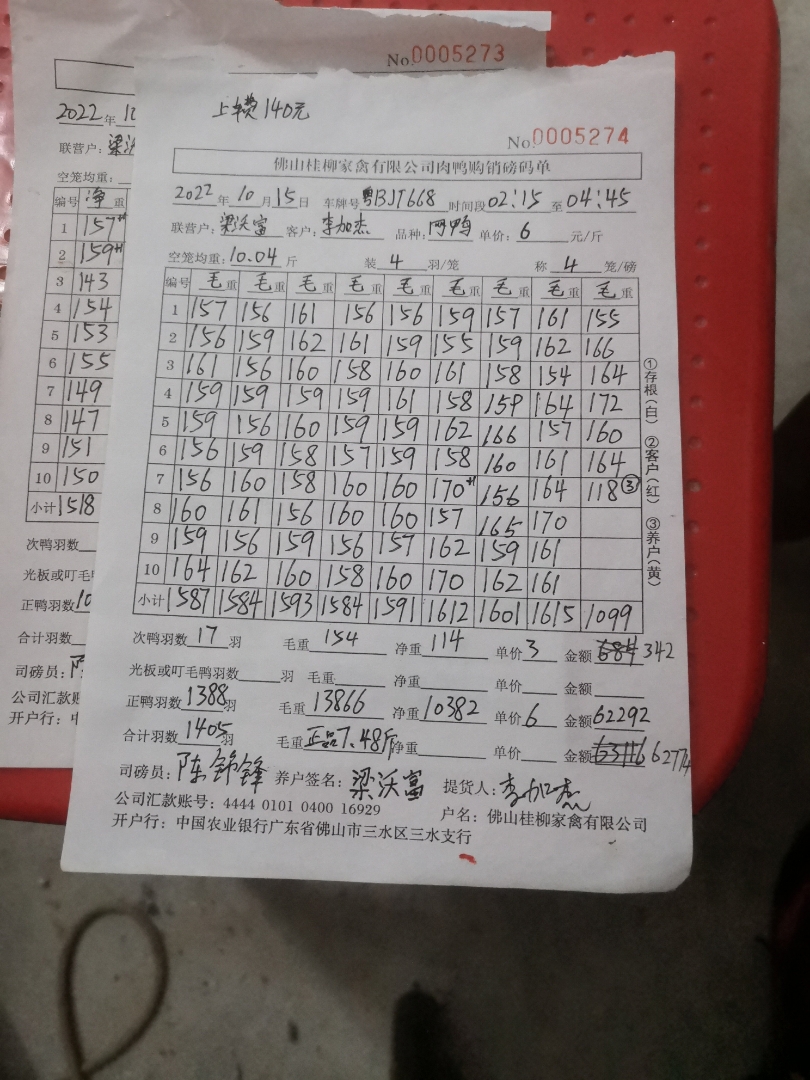 No.0005273
2022年 10
联营户:梁沃
空笼均重:
编号 净重
1 157+1
2 159+1
3 143
4 154
5 153
6 155
7 149
8 147
9 151
10 150
小计 1518
次鸭羽数
光板或叮毛
正鸭羽数10
合计羽数
司磅员:陈
公司汇款账
开户行:
上车费140元
No.0005274
佛山桂柳家禽有限公司肉鸭购销磅码单
2022年10月15日 车牌号粤BJT668 时间段02:15至04:45
联营户:梁沃富 客户:李加杰 品种:网鸭 单价:6 元/斤
空笼均重:10.04斤 装4羽/笼 称4笼/磅
编号 毛重 毛重 毛重 毛重 毛重 毛重 毛重 毛重 毛重
1 157 156 161 156 156 159 157 161 155
2 156 159 162 161 159 155 159 162 166
3 161 156 160 158 160 161 158 154 164
4 159 159 159 159 161 158 159 164 172
5 159 156 160 159 159 162 166 157 160
6 156 159 158 157 159 158 160 161 164
7 156 160 158 160 160 170+1 156 164 118③
8 160 161 156 160 160 157 165 170
9 159 156 159 156 157 162 159 161
10 164 162 160 158 160 170 162 161
小计 1587 1584 1593 1584 1591 1612 1601 1615 1099
次鸭羽数17羽 毛重154 净重114 单价3 金额684 342
光板或叮毛鸭羽数 羽 毛重 净重 单价 金额
正鸭羽数1388羽 毛重13866 净重10382 单价6 金额62292
合计羽数1405羽 毛重正品7.48斤净重 单价 金额 62774
司磅员:陈锦锋 养户签名:梁沃富 提货人:李加杰
公司汇款账号:4444 0101 0400 16929 户名:佛山桂柳家禽有限公司
开户行:中国农业银行广东省佛山市三水区三水支行
①存根(白) ②客户(红) ③养户(黄)